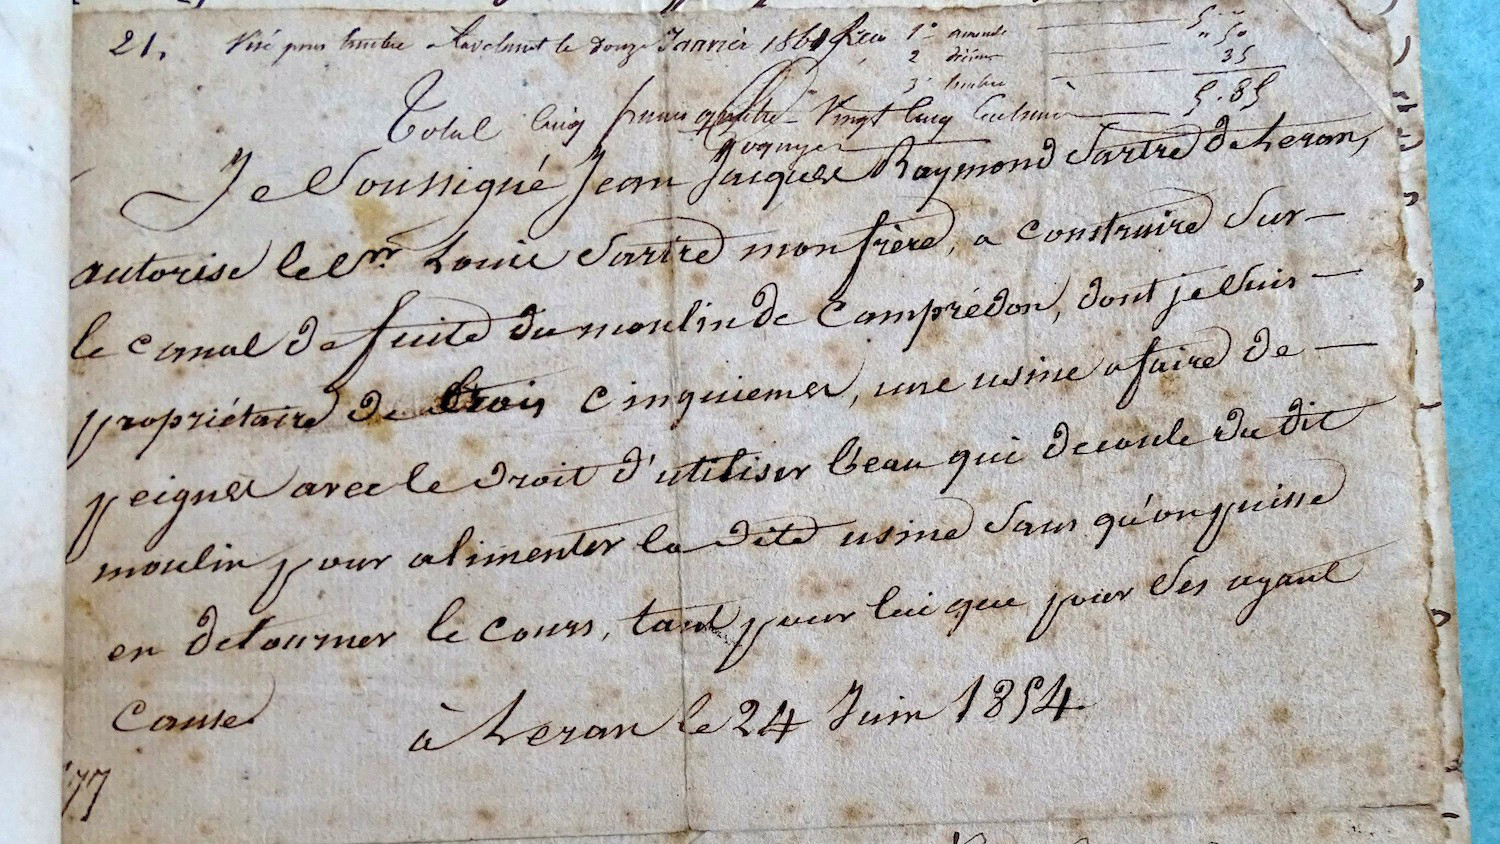 21. Visé pour timbre a Lavelanet le douze Janvier 1861 Reçu 1° amende 5 "
2 décime " 50
3° timbre 35
5.85
Total cinq francs quatre-Vingt Cinq Centimes
Je Soussigné Jean Jacques Raymond Sartre de Leran,
autorise le Sr. Louis Sartre mon frère, a construire Sur
le canal de fuite du moulin de Camprédon, dont je Suis
propriétaire de trois cinquiemes, une usine a faire de
peignes avec le droit d'utiliser l'eau qui decoule du dit
moulin pour alimenter la dite usine Sans qu'on puisse
en detourner le cours, tant pour lui que pour Ses ayant
Cause
à Leran le 24 Juin 1854
77